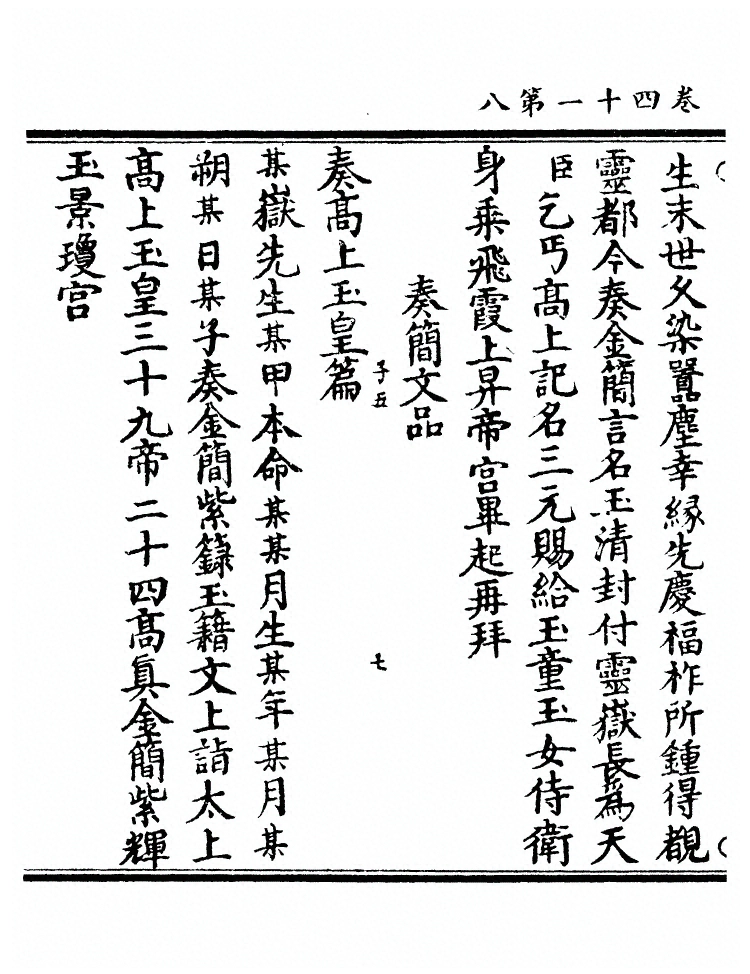 八第一十四卷
生末世久染囂塵幸緣先慶福祚所鍾得覩
靈都今奏金簡言名玉清封付靈嶽長為天
臣乞丐高上記名三元賜給玉童玉女侍衛
身乘飛霞上昇帝宮畢起再拜
奏簡文品
子五
七
奏高上玉皇篇
某嶽先生某甲本命某某月生某年某月某
朔某日某子奏金簡紫籙玉籍文上詣太上
高上玉皇三十九帝二十四高真金簡紫輝
玉景瓊宮